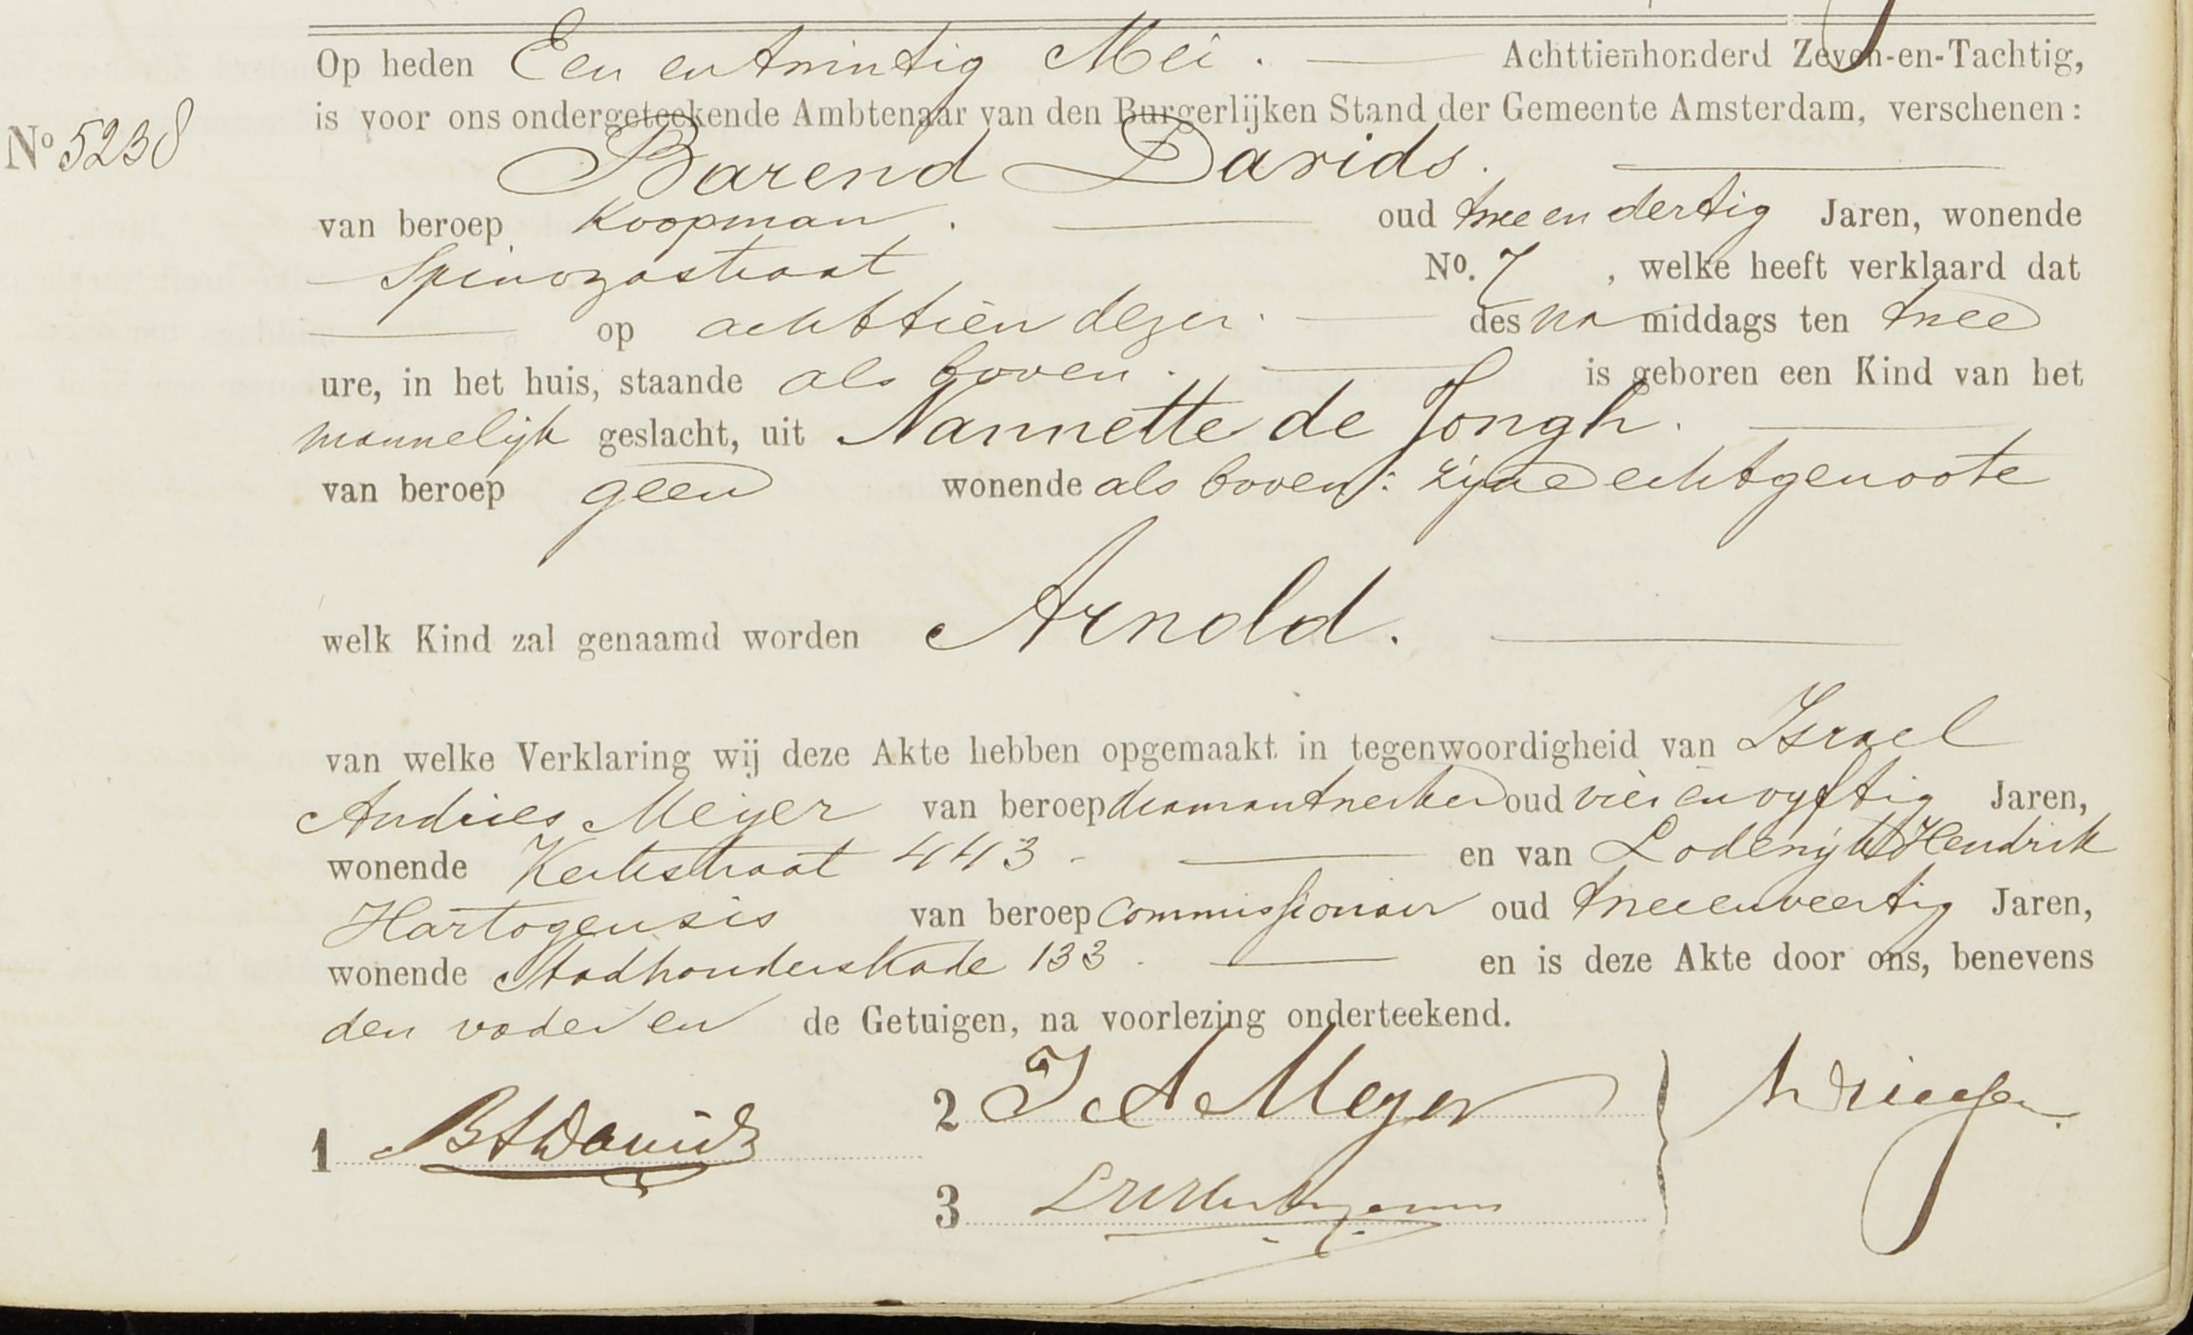 Op heden Een en twintig Mei. Achttienhonderd Zeven-en-Tachtig,
is voor ons ondergeteekende Ambtenaar van den Burgerlijken Stand der Gemeente Amsterdam, verschenen:
No 5238
Barend Davids.
van beroep Koopman. oud twee en dertig Jaren, wonende
Spinozastraat No. 7, welke heeft verklaard dat
op achttien dezer. des na middags ten twee
ure, in het huis, staande als boven. is geboren een Kind van het
mannelijk geslacht, uit Nannette de Jongh.
van beroep geen wonende als boven: zijne echtgenoote
welk Kind zal genaamd worden Arnold.
van welke Verklaring wij deze Akte hebben opgemaakt in tegenwoordigheid van Israel
Andries Meijer van beroep diamantwerker oud vier en vyftig Jaren,
wonende Kerkstraat 443 en van Lodewijk Hendrik
Hartogensis van beroep commissionair oud twee en veertig Jaren,
wonende Stadhouderskade 133. en is deze Akte door ons, benevens
den vader en de Getuigen, na voorlezing onderteekend.
1 B A Davids
2 I A Meyer
3